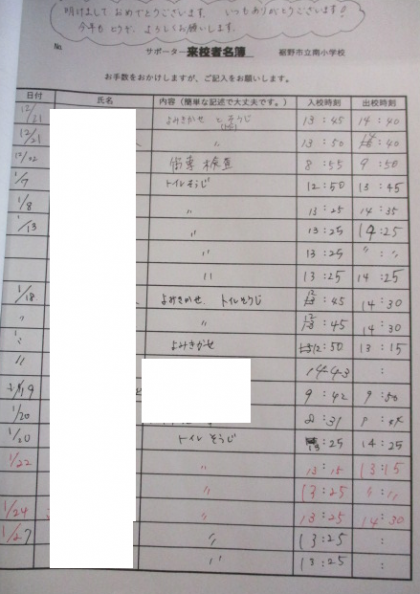 明けまして おめでとうございます。 いつもありがとうございます!!
今年も どうぞ、よろしくお願いします。
No. サポーター 来校者名簿 裾野市立南小学校
お手数をおかけしますが、ご記入をお願いします。
日付 氏名 内容(簡単な記述で大丈夫です。) 入校時刻 出校時刻
12/21 よみきかせ と そうじ 13:45 14:40
12/21 〃 13:50 14:40
12/22 検査 8:55 9:50
1/7 トイレそうじ 12:50 13:45
1/8 〃 13:25 14:35
1/13 〃 13:25 14:25
〃 13:25 〃:〃
〃 13:25 14:25
1/18 よみきかせ、トイレそうじ 12:45 14:30
〃 〃 12:45 14:30
〃 よみきかせ 12:50 13:15
〃 14:43 :
1/19 9:42 9:50
1/20 8:31
1/20 トイレそうじ 13:25 14:25
1/22 〃 13:15 13:15
〃 13:25 〃:〃
1/24 〃 13:25 14:30
1/27 〃 13:25 :
〃 13:25 :